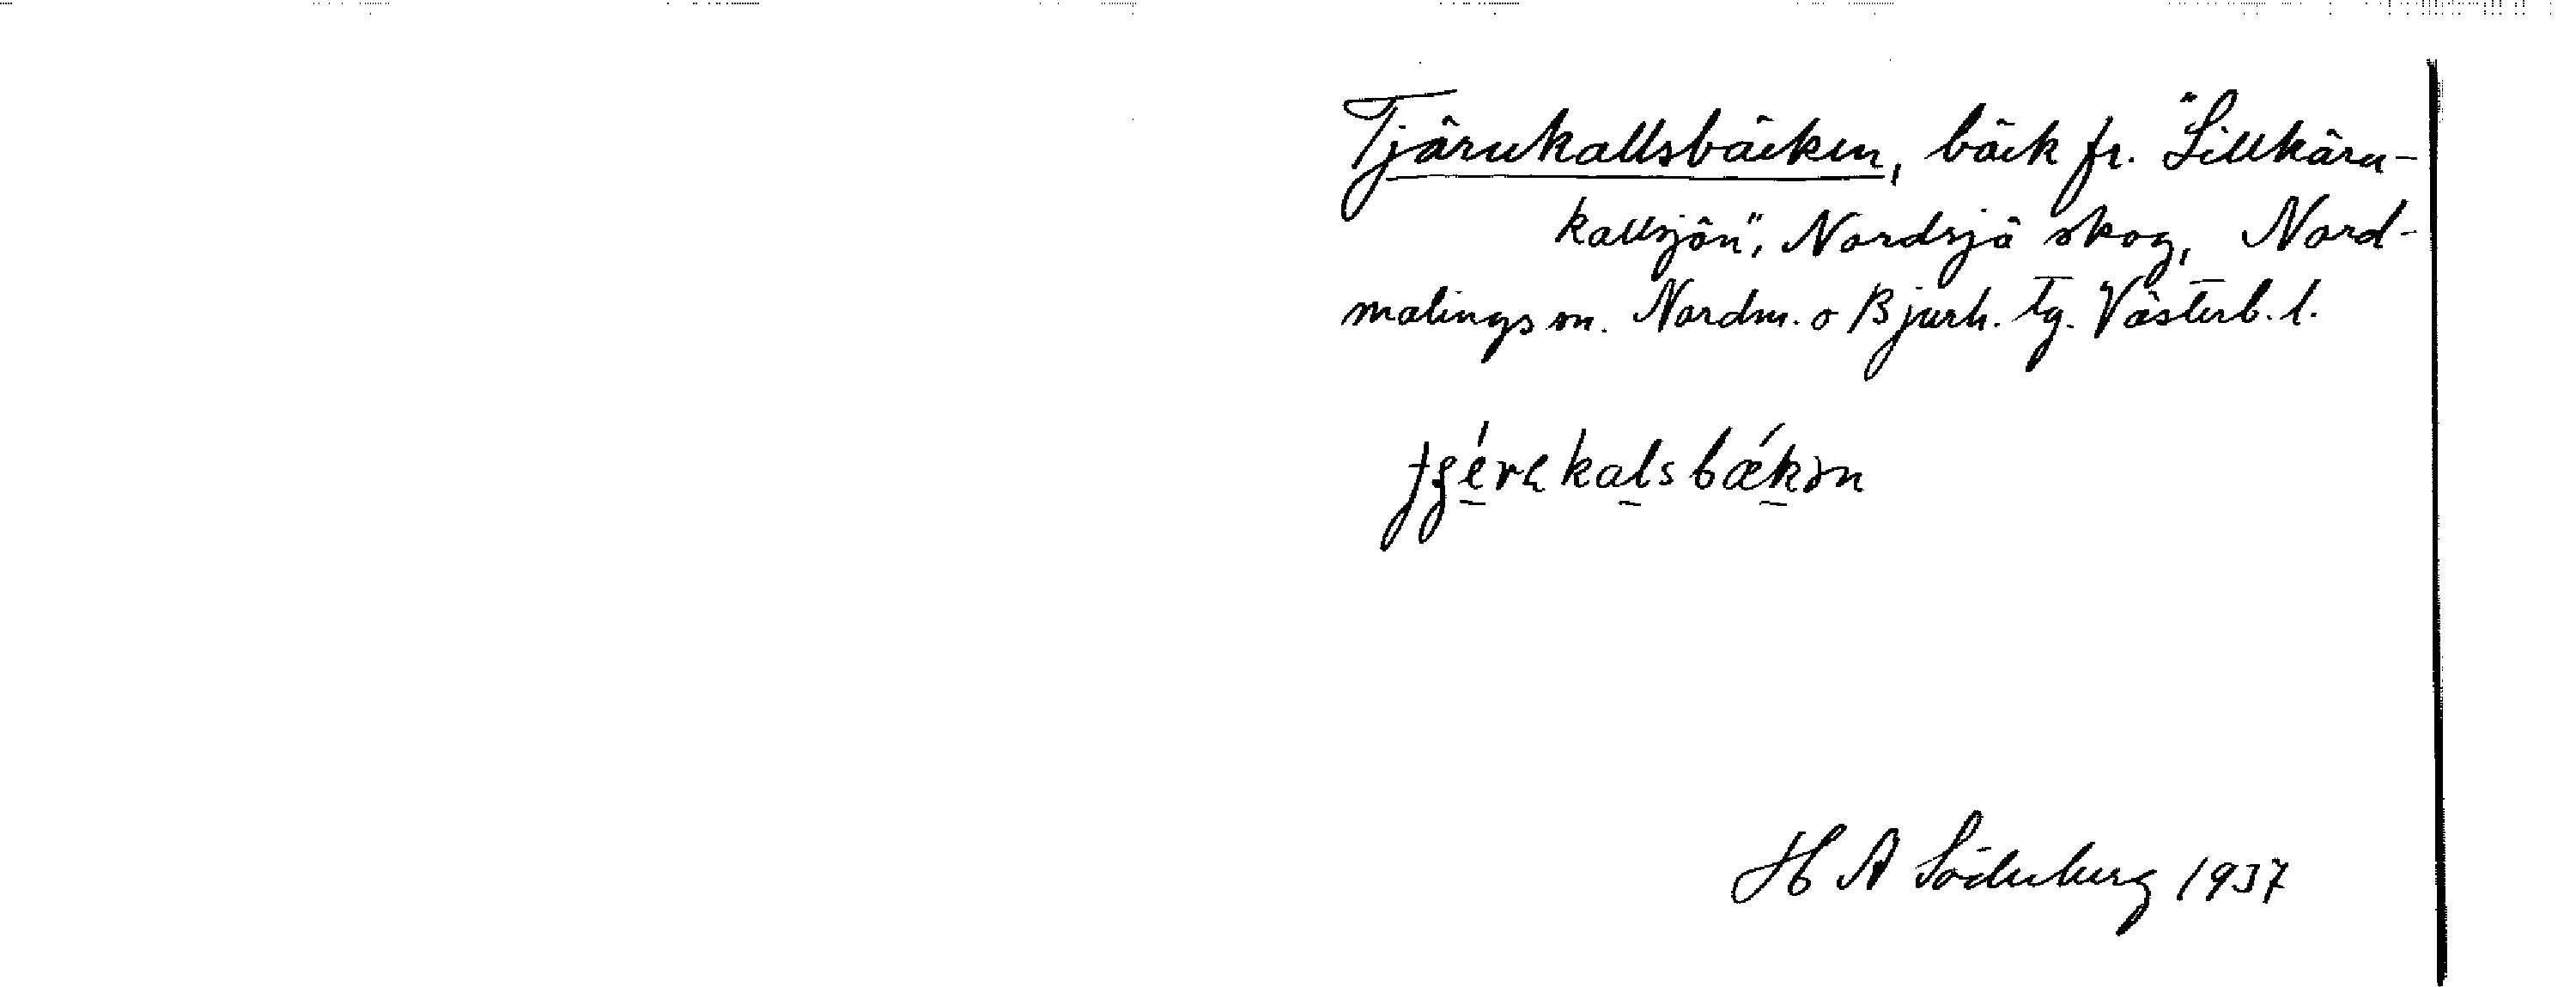 Tjärukallsbäcken, bäck fr. "Lillkäru-
kallsjön", Nordsjö skog, Nord-
malings sn. Nordm. o Bjurh. tg. Västerb. l.
H A Söderberg 1937